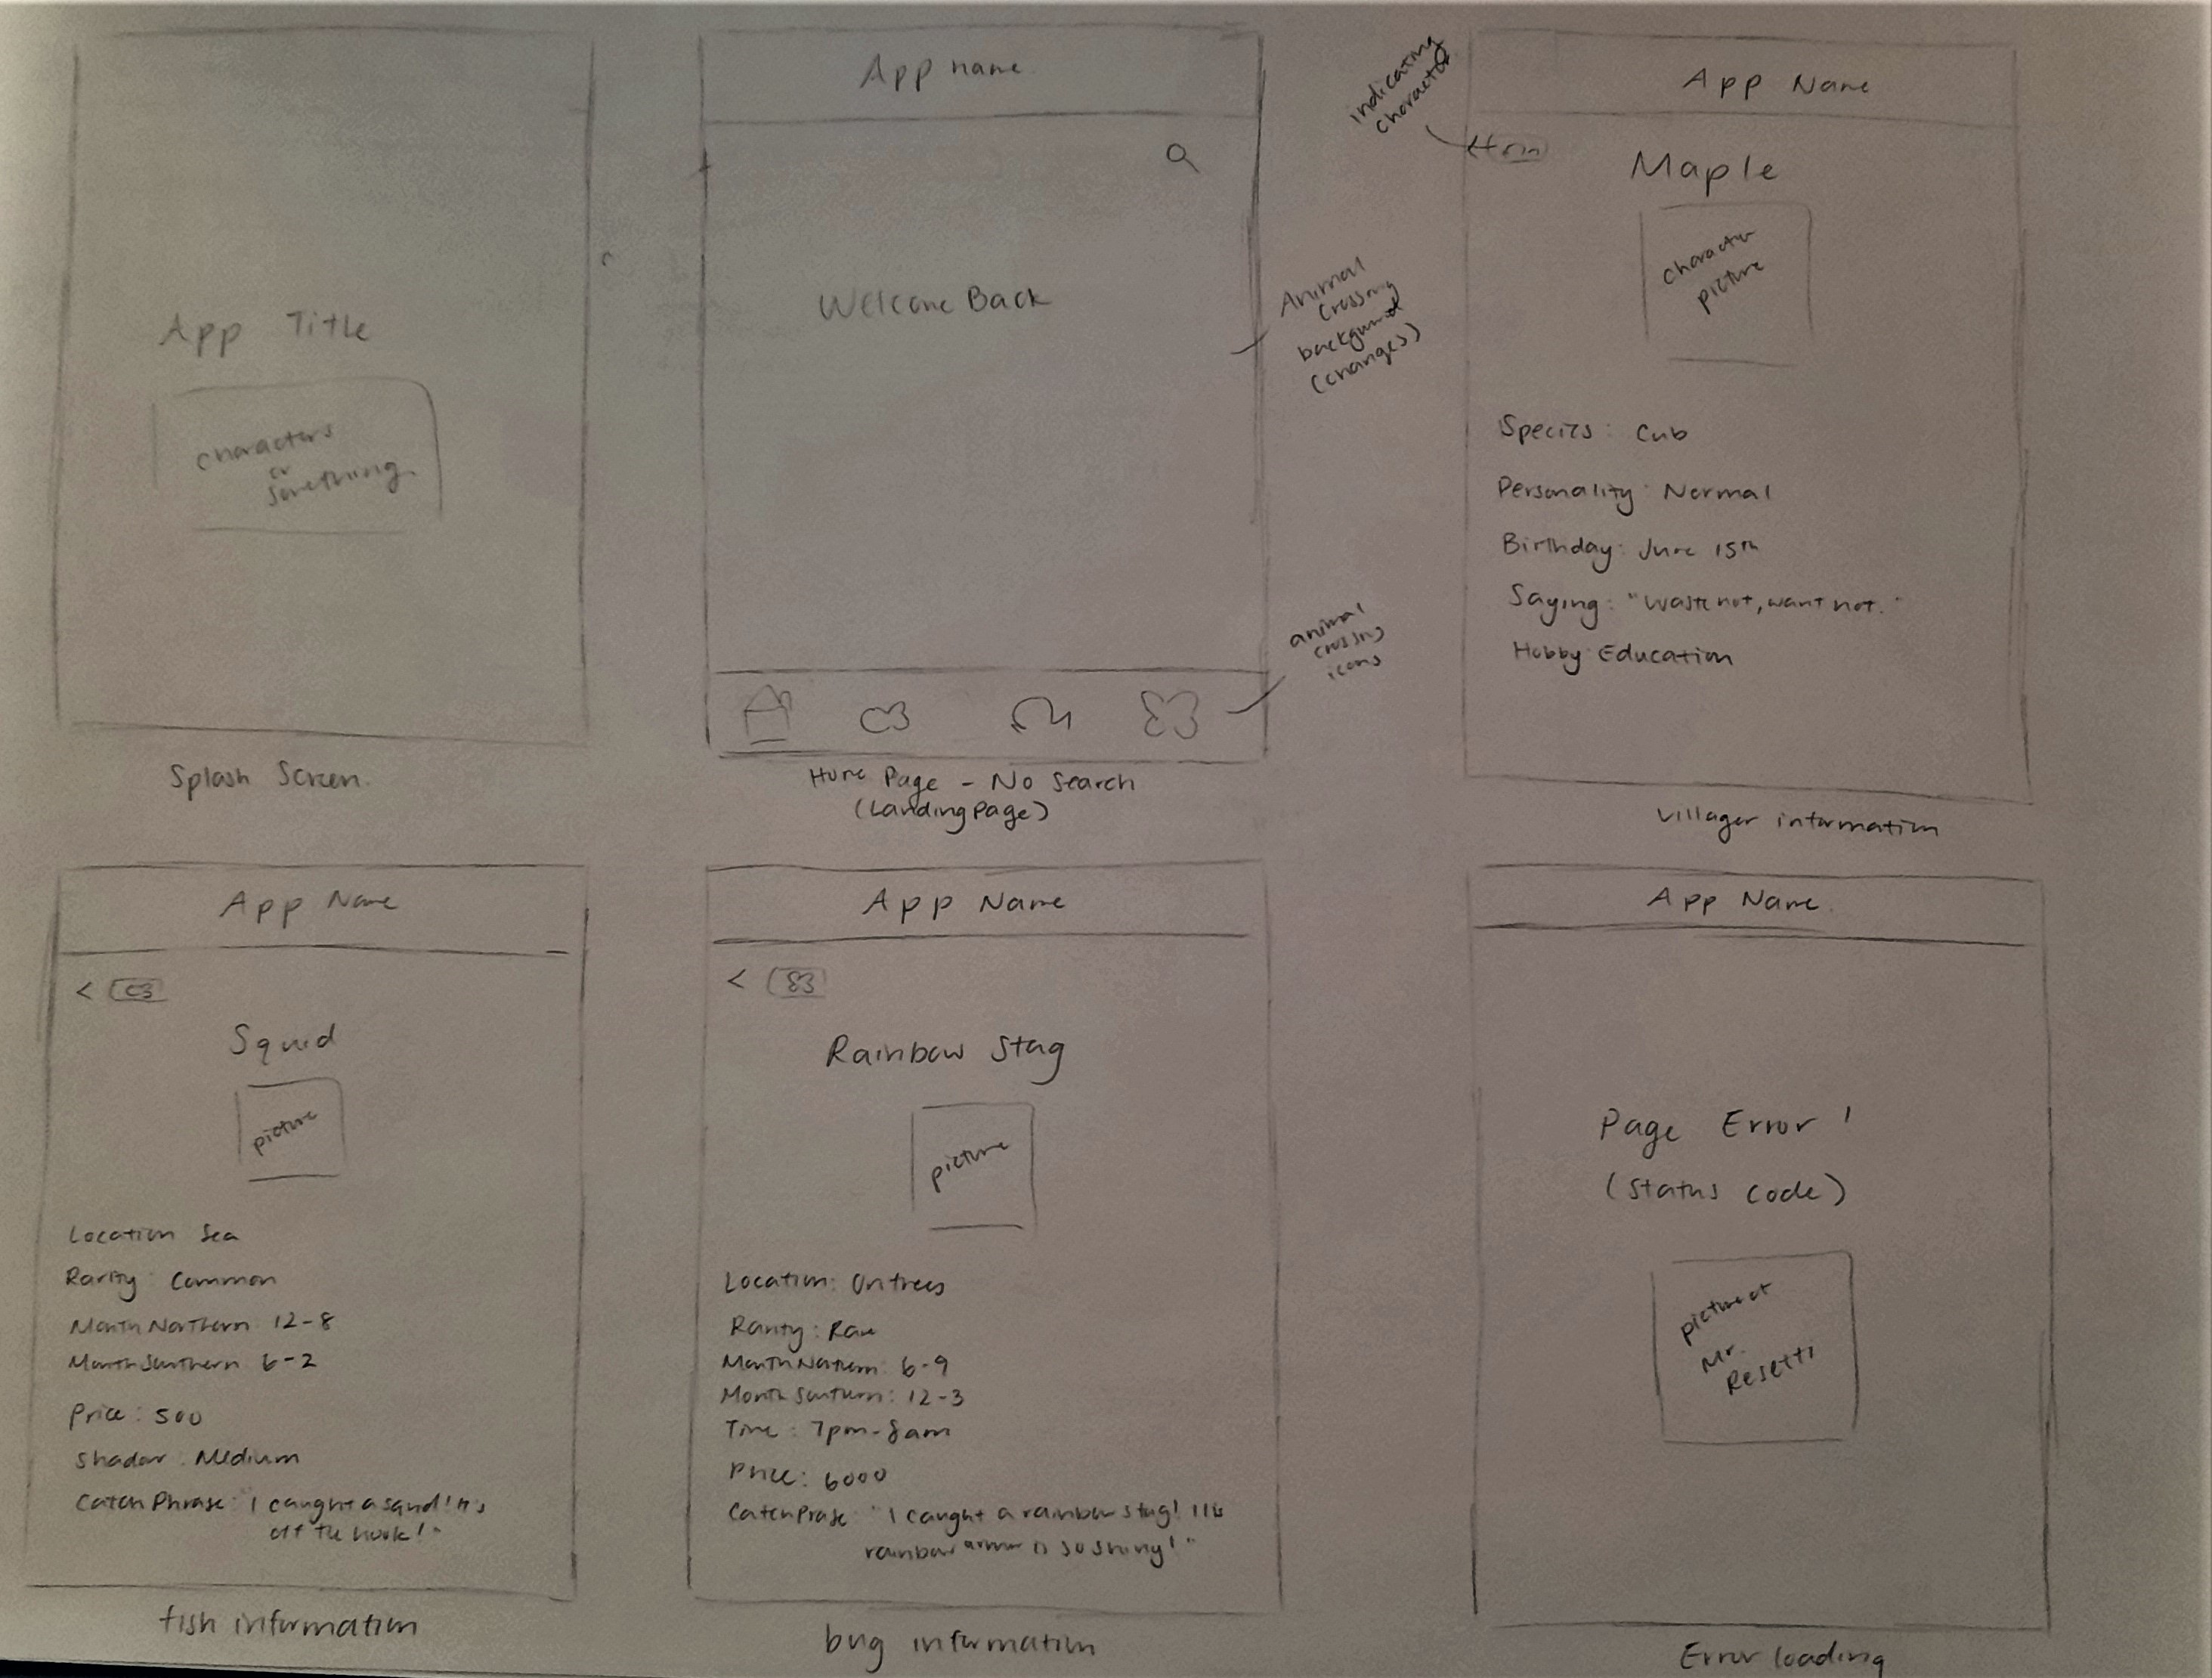 App Title
characters
or
something
Splash Screen.
App name
Welcome Back
Animal
Crossing
background
(changes)
animal
crossing
icons
Home Page - No Search
(Landing Page)
indicating
character
App Name
Maple
character
picture
Species: Cub
Personality: Normal
Birthday: June 15th
Saying: "Waste not, want not."
Hobby: Education
villager information
App Name
Squid
picture
Location Sea
Rarity: Common
Month Northern 12-8
Month Southern 6-2
Price: 500
Shadow: Medium
Catch Phrase: "I caught a squid! It's
off the hook!"
fish information
App Name
Rainbow Stag
picture
Location: On trees
Rarity: Rare
Month Northern: 6-9
Month Southern: 12-3
Time: 7pm-8am
Price: 6000
CatchPrase: "I caught a rainbow stag! Its
rainbow armor is so shiny!"
bug information
App Name
Page Error!
(Status code)
picture of
Mr.
Resetti
Error loading